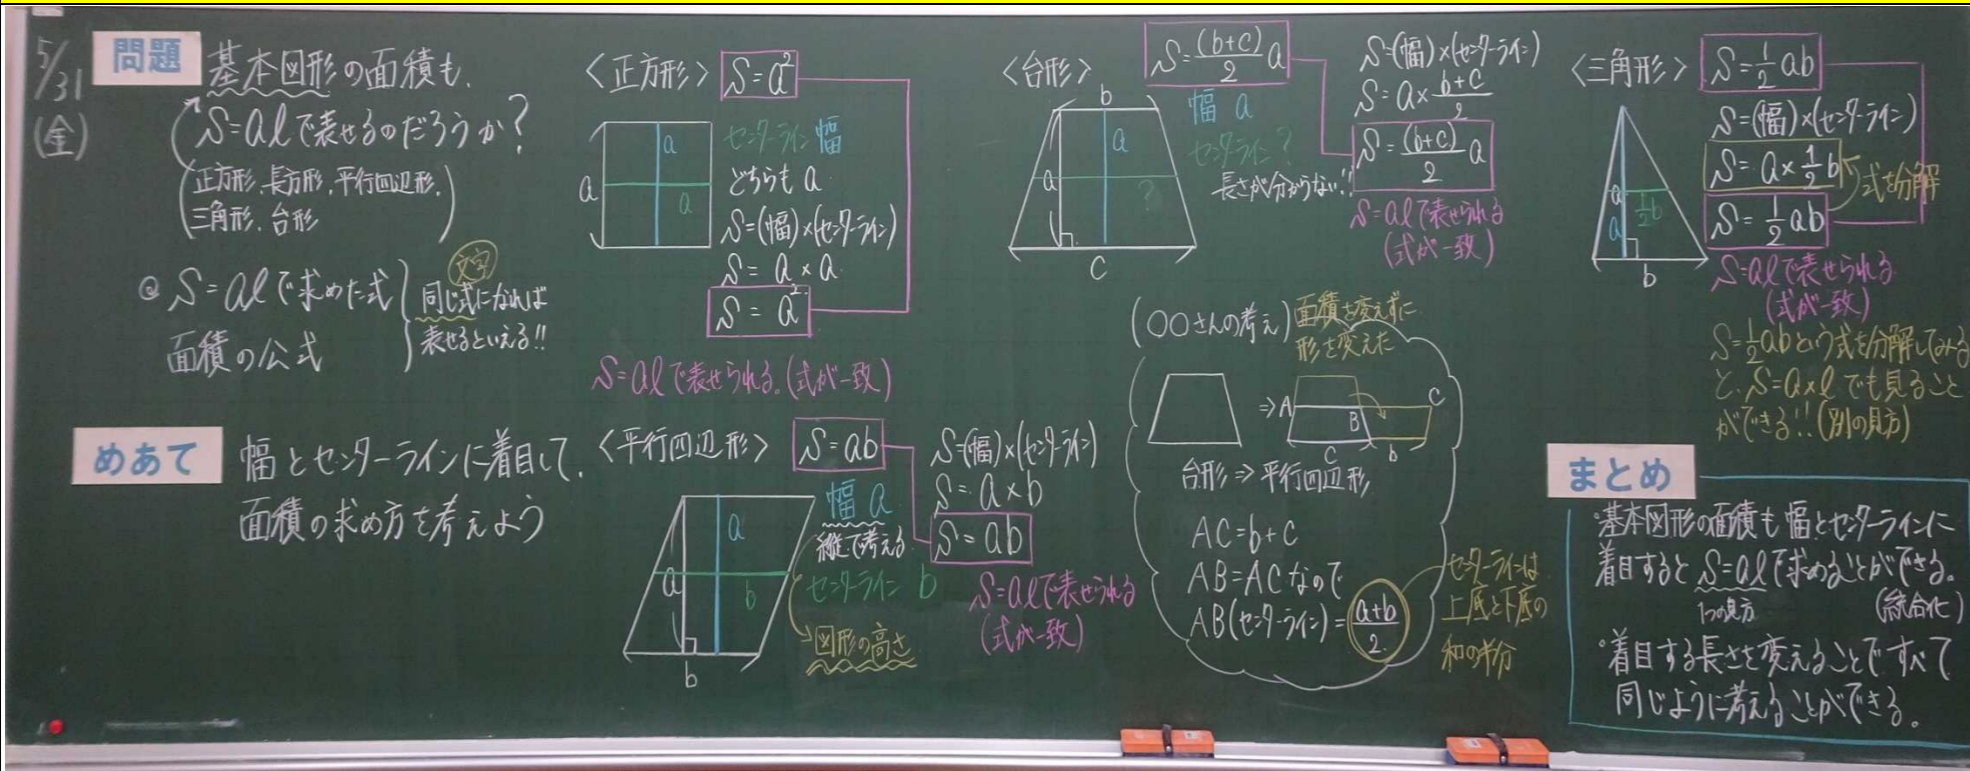 5/31
(金)
問題
基本図形の面積も、
S=aℓで表せるのだろうか?
(正方形、長方形、平行四辺形、
三角形、台形)
◎ S=aℓで求めた式
面積の公式
文字
同じ式になれば
表せるといえる!!
めあて
幅とセンターラインに着目して、
面積の求め方を考えよう
〈正方形〉 S=a²
a
a
a
センターライン 幅
どちらも a
S=(幅)×(センターライン)
S = a × a
S = a²
S=aℓで表せられる。(式が一致)
〈平行四辺形〉 S=ab
a
a
b
b
幅 a
縦で考える
センターライン b
図形の高さ
S=(幅)×(センターライン)
S = a×b
S = ab
S=aℓで表せられる
(式が一致)
〈台形〉 S=(b+c)/2 a
b
a
a
?
c
幅 a
センターライン?
長さが分からない!!
S=(幅)×(センターライン)
S = a× b+c/2
S = (b+c)/2 a
S=aℓで表せられる
(式が一致)
(○○さんの考え)
面積を変えずに
形を変えた
⇒
A
B
C
c
b
台形⇒平行四辺形
AC=b+c
AB=ACなので
AB(センターライン)= a+b/2
センターラインは
上底と下底の
和の半分
〈三角形〉 S=1/2 ab
a
a
1/2b
b
S=(幅)×(センターライン)
S = a×1/2 b
式を分解
S = 1/2 ab
S=aℓで表せられる
(式が一致)
S=1/2abという式を分解してみる
と、S=a×ℓでも見ること
ができる!!(別の見方)
まとめ
・基本図形の面積も幅とセンターラインに
着目するとS=aℓで求めることができる。
1つの見方
(統合化)
・着目する長さを変えることですべて
同じように考えることができる。